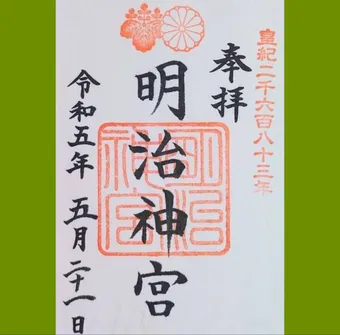 皇紀二千六百八十三年
奉拝
明治神宮
明治
神宮
令和五年 五月二十一日